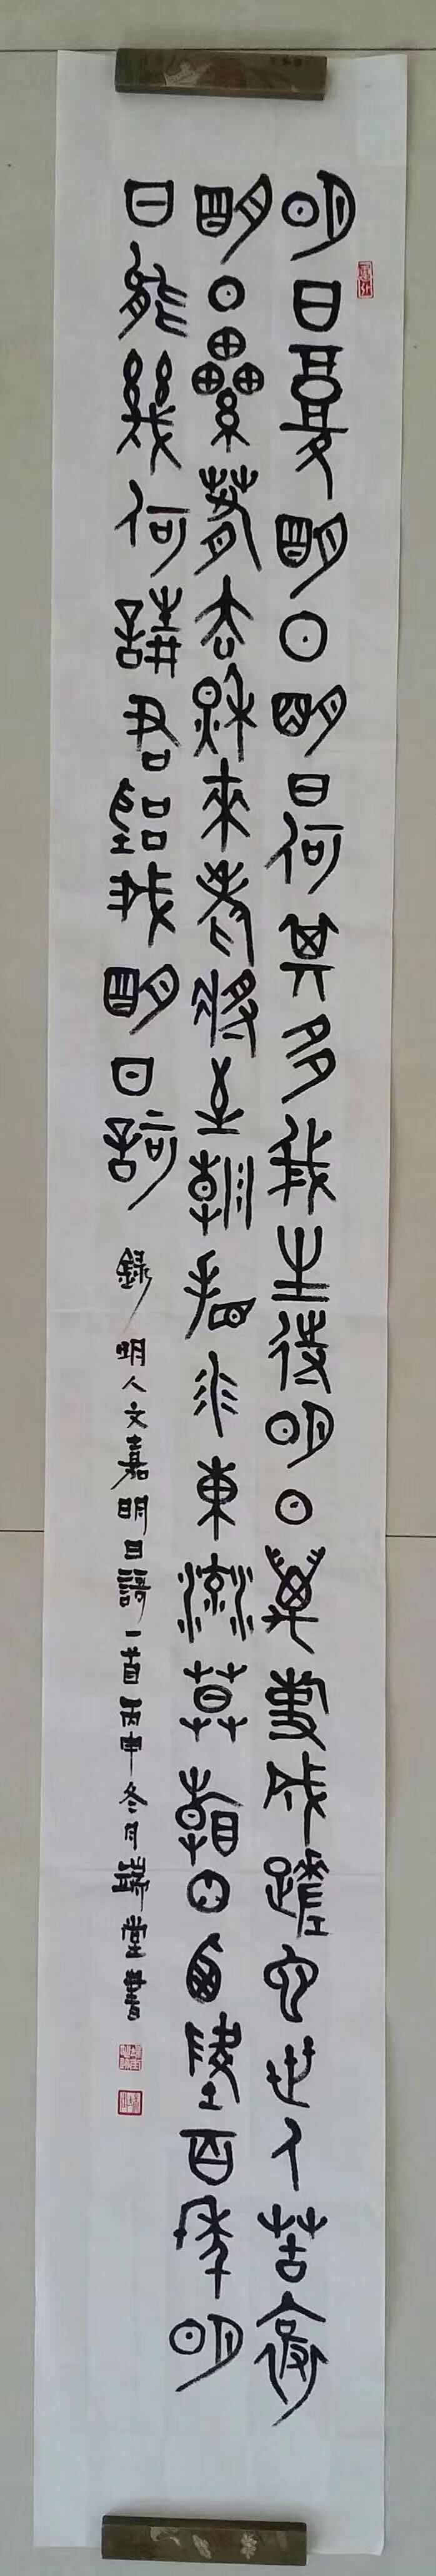 明日复明日明日何其多我生待明日萬事成蹉它世人苦被
明日纍春去秋來老將至朝看水東流莫看日西墜百年明
日能幾何請君聽我明日謌 錄明人文嘉明日謌一首丙申冬月端堂書